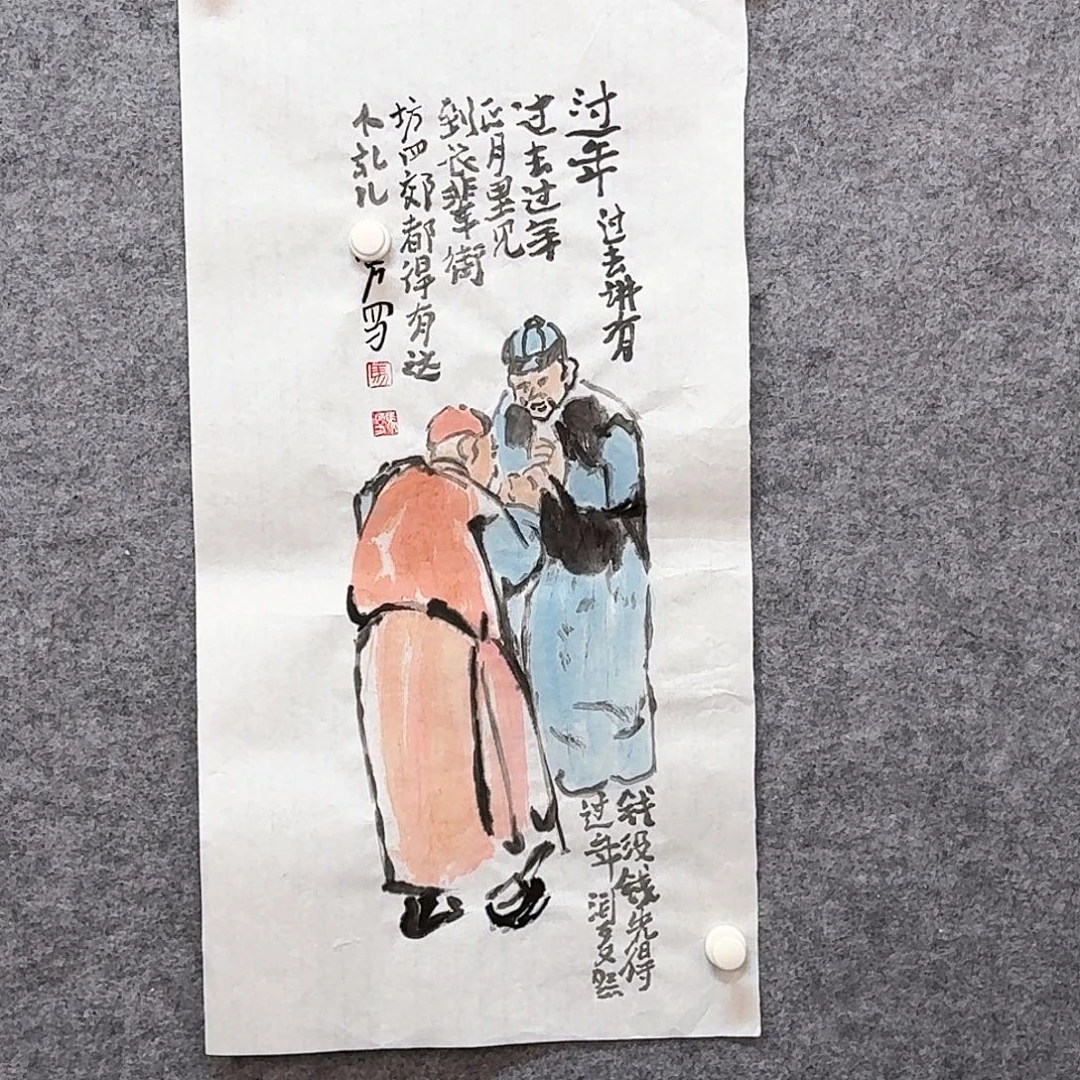 过年
过去讲有
钱没钱先得
过年
过去过年
正月里见
到长辈街
坊四邻都得有这
个礼儿